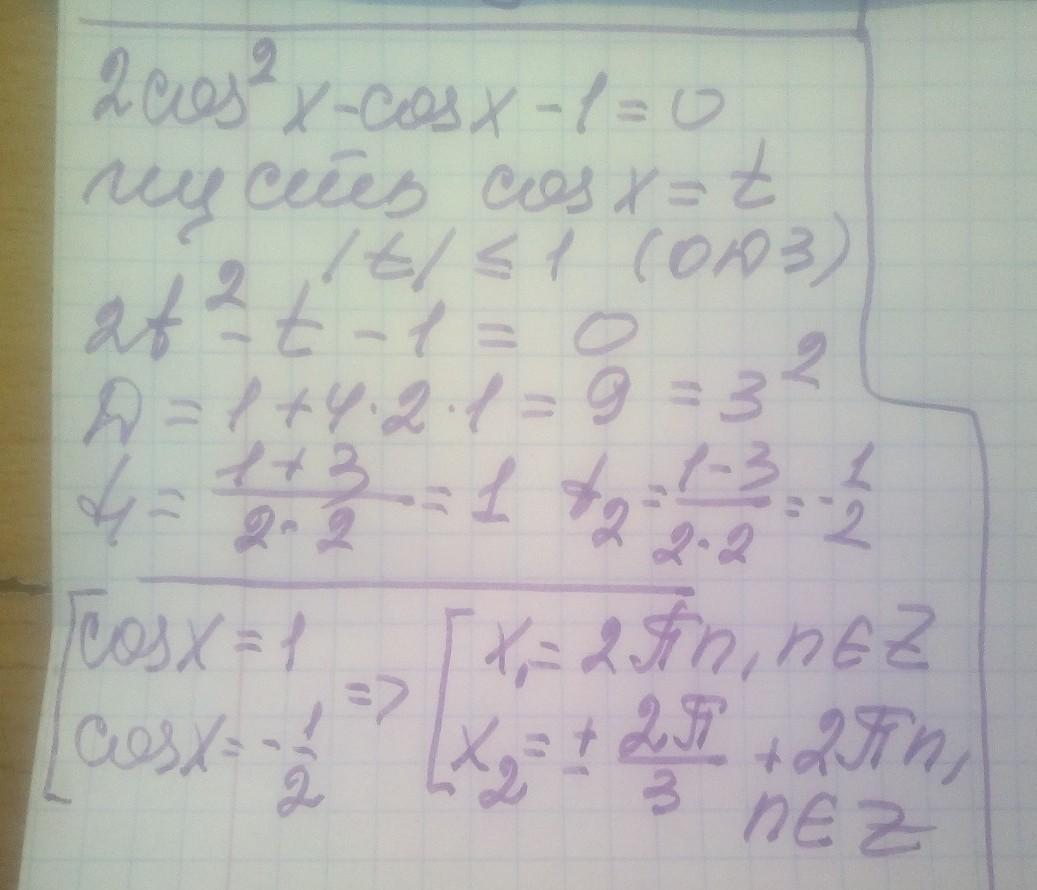 2cos² x - cos x - 1 = 0
пусть cos x = t
|t| ≤ 1 (ОДЗ)
2t² - t - 1 = 0
D = 1 + 4·2·1 = 9 = 3²
t₁ = (1+3)/(2·2) = 1 t₂ = (1-3)/(2·2) = -1/2
[cos x = 1 => [x₁ = 2πn, n∈Z
cos x = -1/2 x₂ = ± 2π/3 + 2πn,
n∈Z